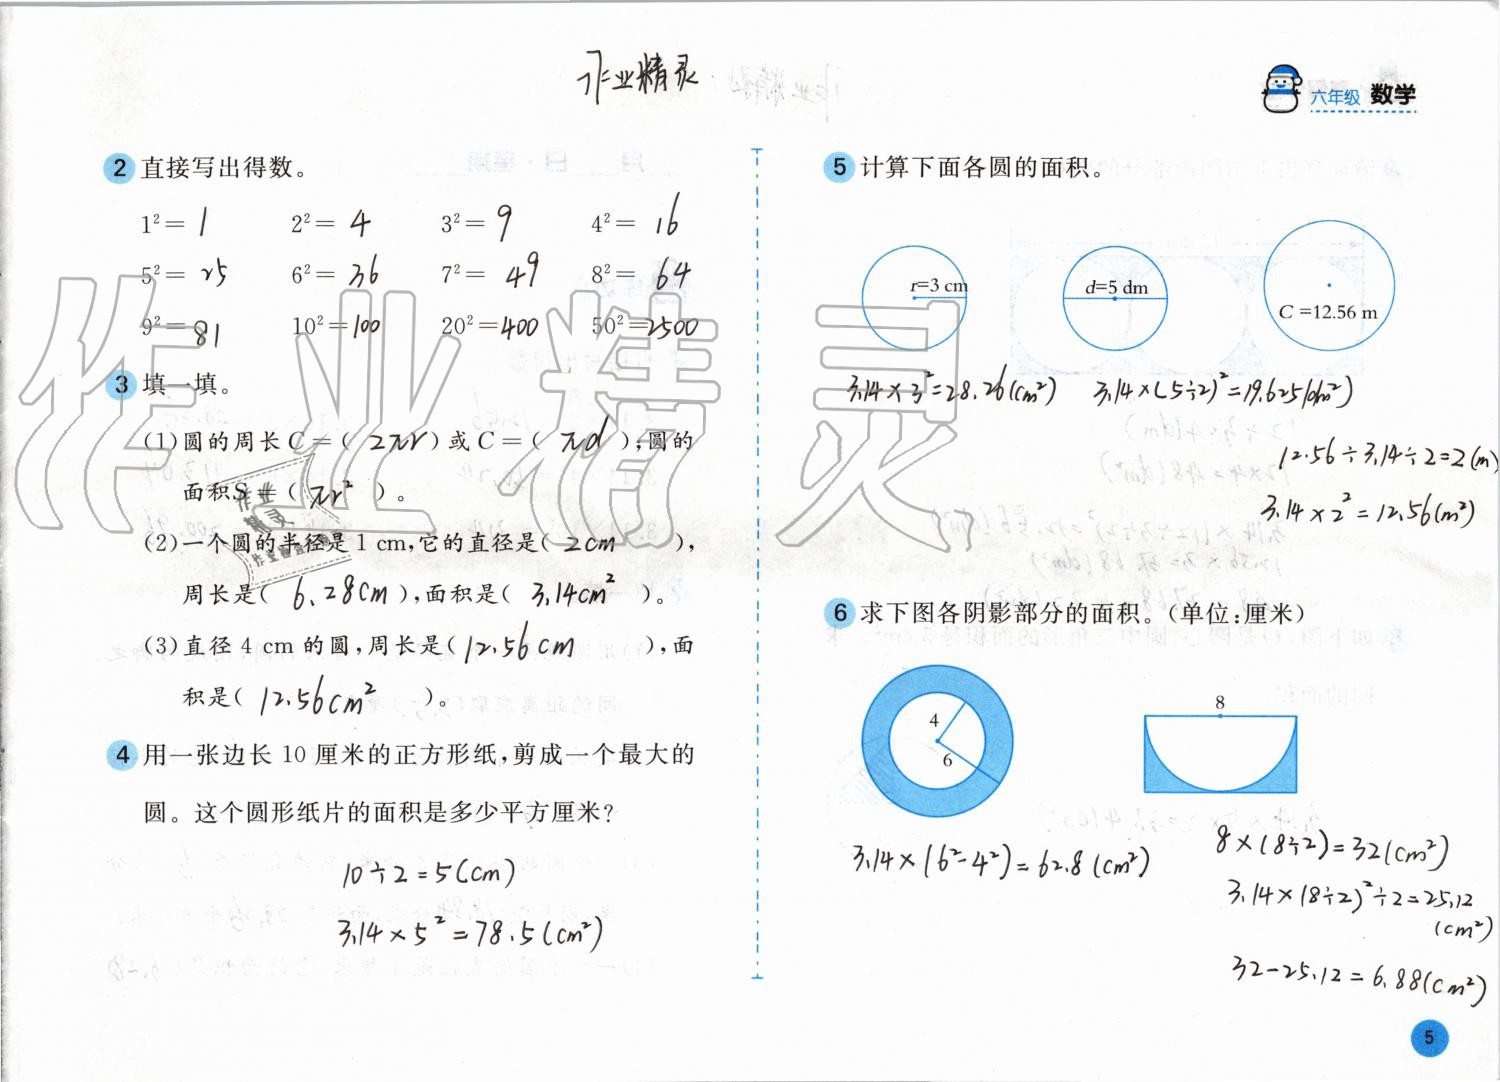 作业精灵
六年级 数学
2 直接写出得数。
1²= 1 2²= 4 3²= 9 4²= 16
5²= 25 6²= 36 7²= 49 8²= 64
9²= 81 10²=100 20²=400 50²=2500
3 填一填。
(1)圆的周长C=( 2πr )或C=( πd );圆的
面积S=( πr² )。
(2)一个圆的半径是1 cm,它的直径是( 2cm ),
周长是( 6.28cm ),面积是( 3.14cm² )。
(3)直径 4 cm 的圆,周长是( 12.56cm ),面
积是( 12.56cm² )。
4 用一张边长 10 厘米的正方形纸,剪成一个最大的
圆。这个圆形纸片的面积是多少平方厘米?
10÷2=5(cm)
3.14×5²=78.5(cm²)
5 计算下面各圆的面积。
r=3 cm d=5 dm C=12.56 m
3.14×3²=28.26(cm²) 3.14×(5÷2)²=19.625(dm²)
12.56÷3.14÷2=2(m)
3.14×2²=12.56(m²)
6 求下图各阴影部分的面积。(单位:厘米)
4
6
8
3.14×(6²-4²)=62.8(cm²)
8×(8÷2)=32(cm²)
3.14×(8÷2)²÷2=25.12
(cm²)
32-25.12=6.88(cm²)
5
作业精灵
作业
精灵